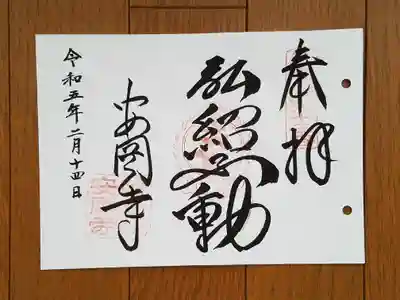 奉拝
弘紹不動
安岡寺
令和五年二月十四日